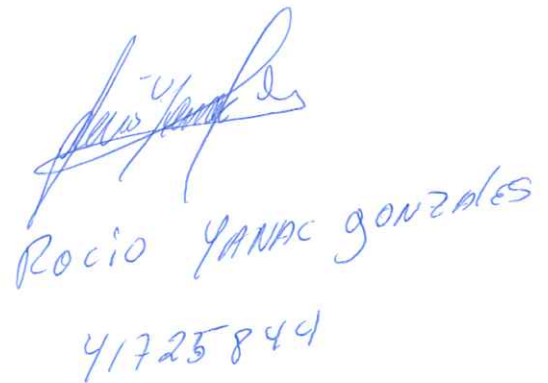 ROCIO YANAC GONZALES
41725844